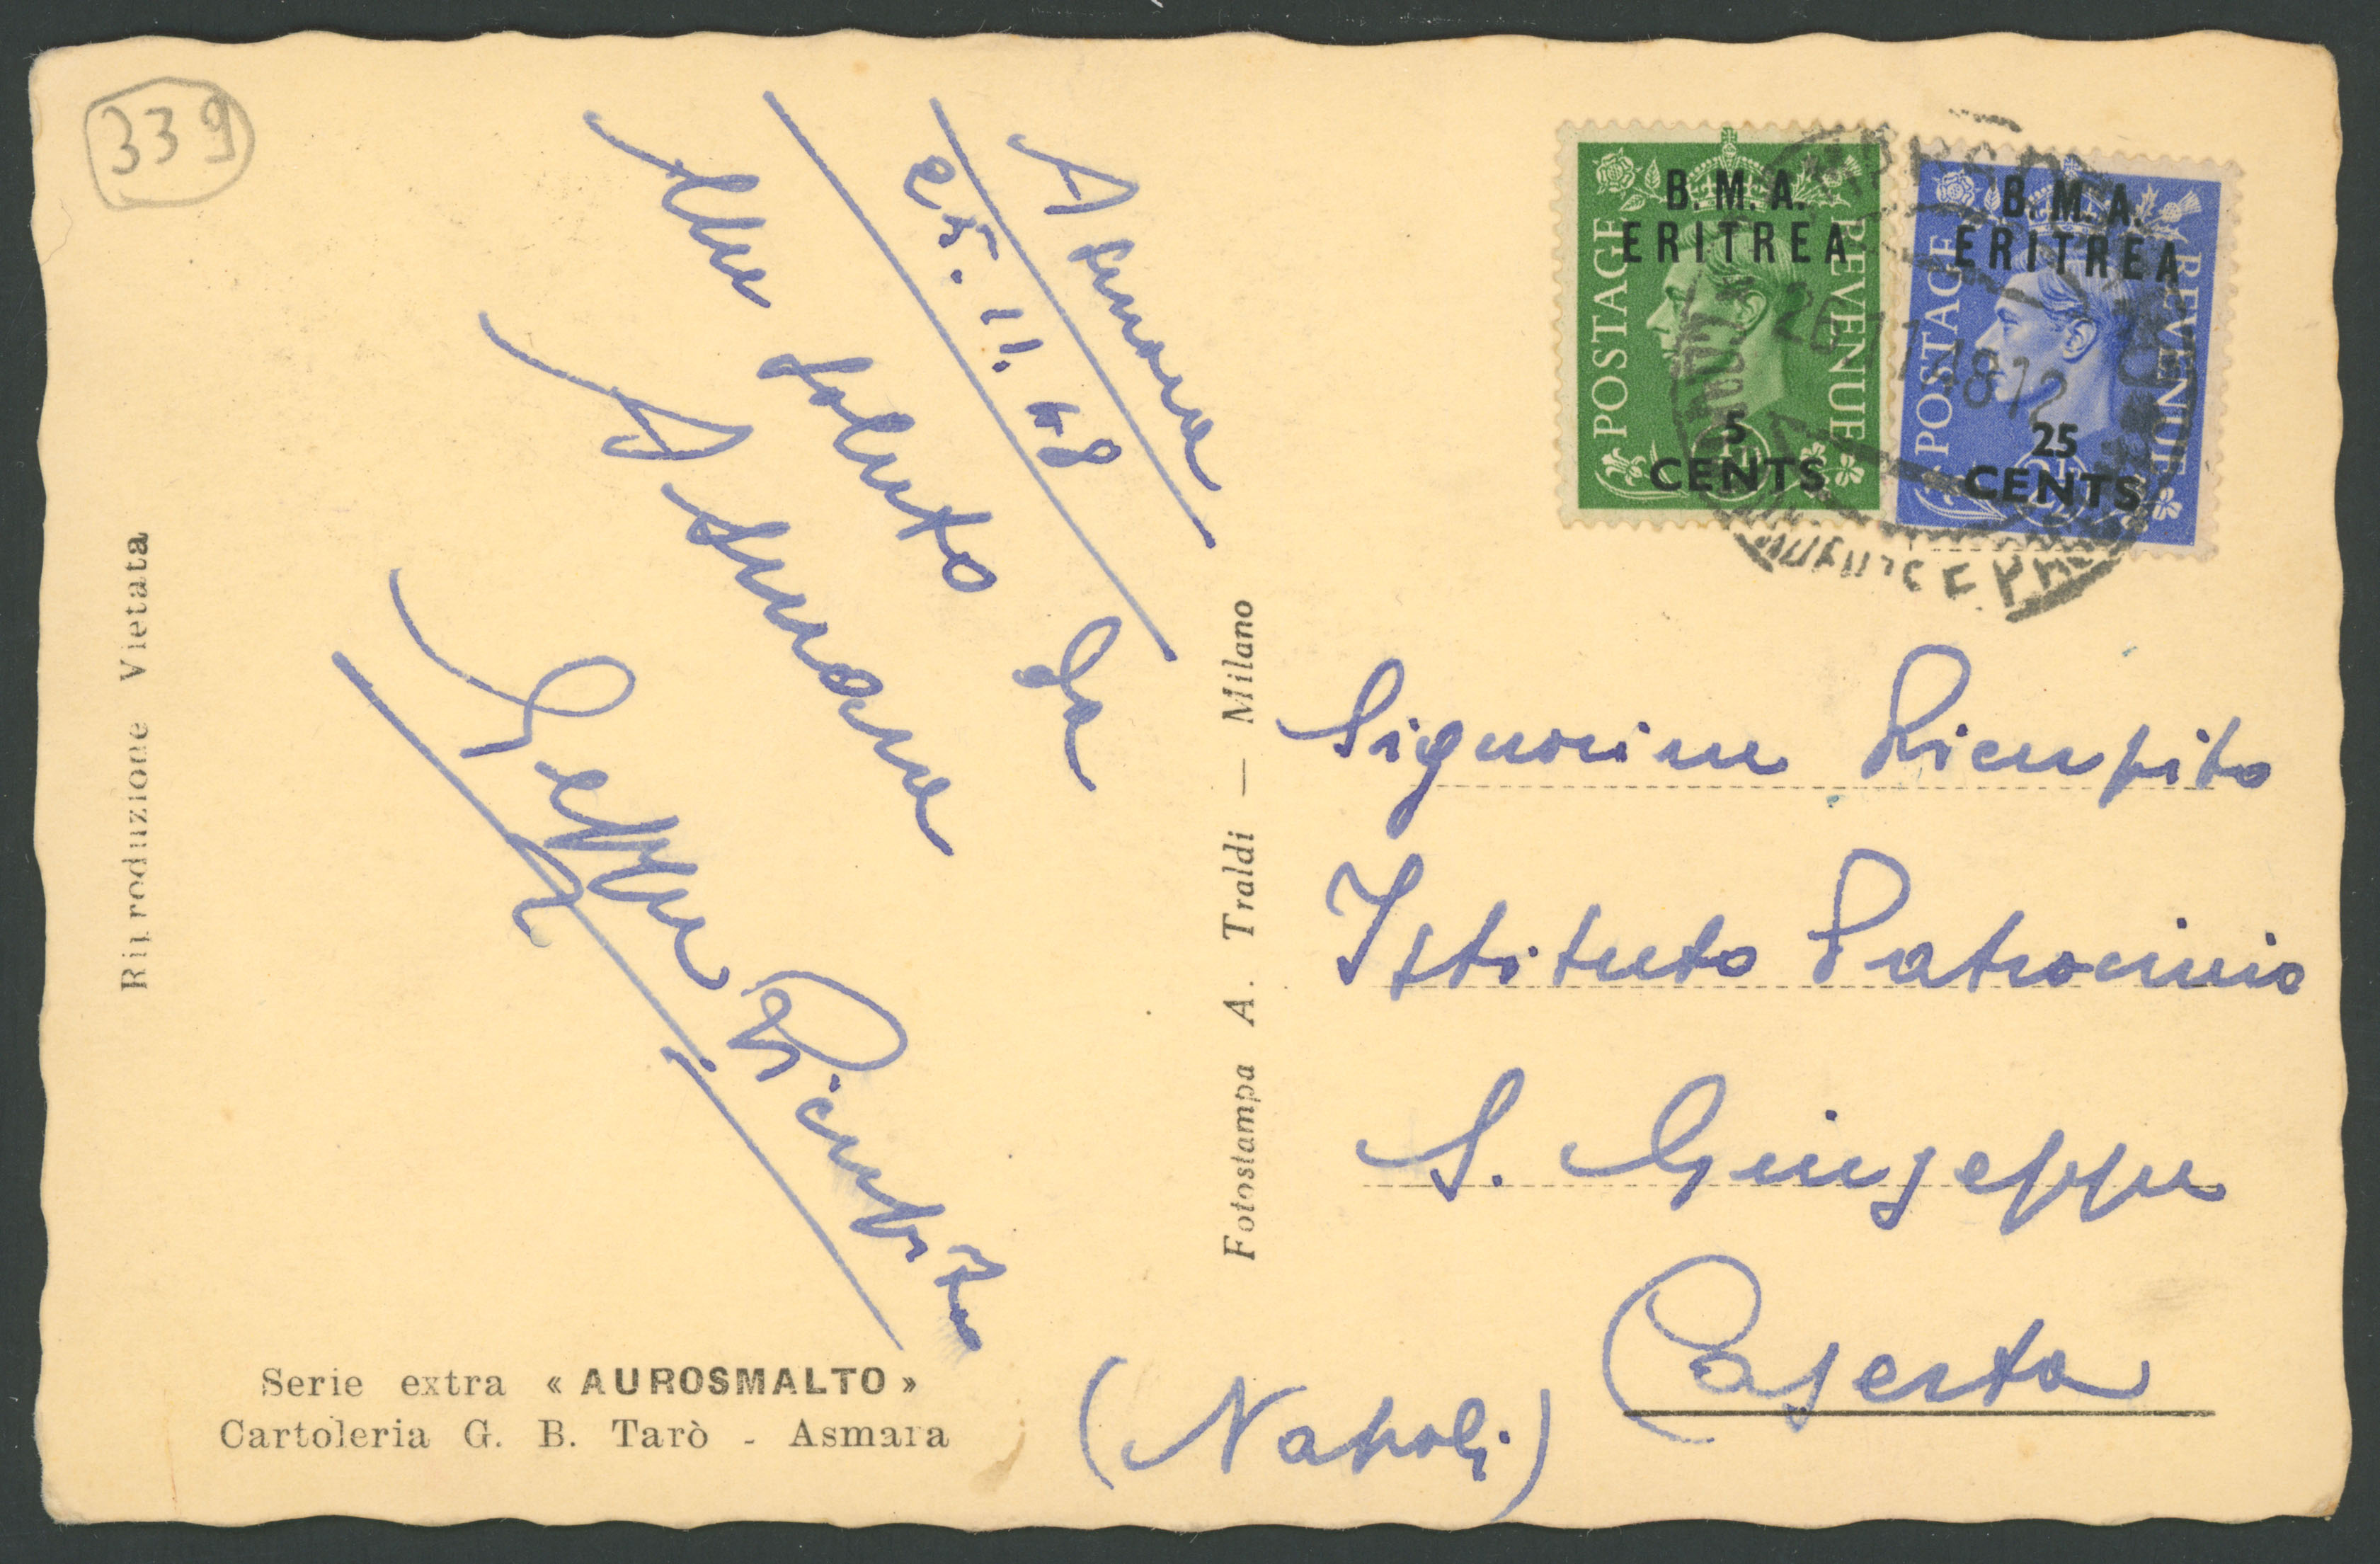 339
Asmara
25.11.48
Un saluto da
Asmara
Riproduzione Vietata
Serie extra « AUROSMALTO »
Cartoleria G. B. Tarò - Asmara
Fotostampa A. Traldi — Milano
B. M. A.
ERITREA
POSTAGE
REVENUE
5
CENTS
B. M. A.
ERITREA
POSTAGE
REVENUE
25
CENTS
Signorina
Istituto Patrocinio
S. Giuseppe
Caserta
(Napoli)